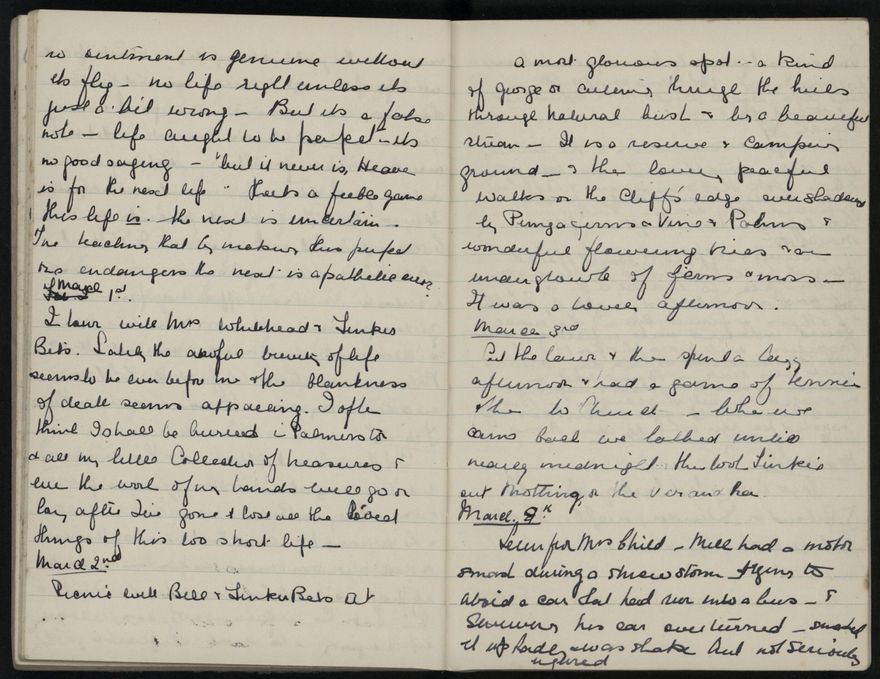 no ointment is genuine without
its fly - no life right unless its
just a bit wrong - But its a false
note - life ought to be perfect - its
no good saying - "but it never is, Heaven
is for the next life" thats a feeble game
this life is. the next is uncertain -
The teaching that by making this perfect
one endangers the next is a pathetic error.
March 1st.
I tour with Mrs Whitehead & Tinker
Bets. Lately the awful brevity of life
seems to be ever before me & the blankness
of death seems appalling. I often
think I shall be buried in Palmerston
& all my little Collection of treasures &
even the work of my hands will go on
long after I've gone & lose all the loved
things of this too short life -
March 2nd
Picnic with Bill & Tinker Bets at
a most glorious spot - a kind
of gorge or cutting through the hills
through natural bush & by a beautiful
stream - It is a reserve & camping
ground - & the lovely peaceful
walks on the cliff's edge overshadowed
by Punga ferns & Vines & Palms &
wonderful flowering trees & an
undergrowth of ferns & moss -
It was a lovely afternoon.
March 3rd
Cut the lawn & then spent a lazy
afternoon & had a game of tennis
& then to Church - when we
came back we talked until
nearly midnight then took Tinker
out on the verandah.
March 9th
Letter from Mrs Child - Will had a motor
smash during a snow storm trying to
avoid a car that had run into a bus - &
swerving his car overturned - smashed
it up badly & was shaken but not seriously
injured